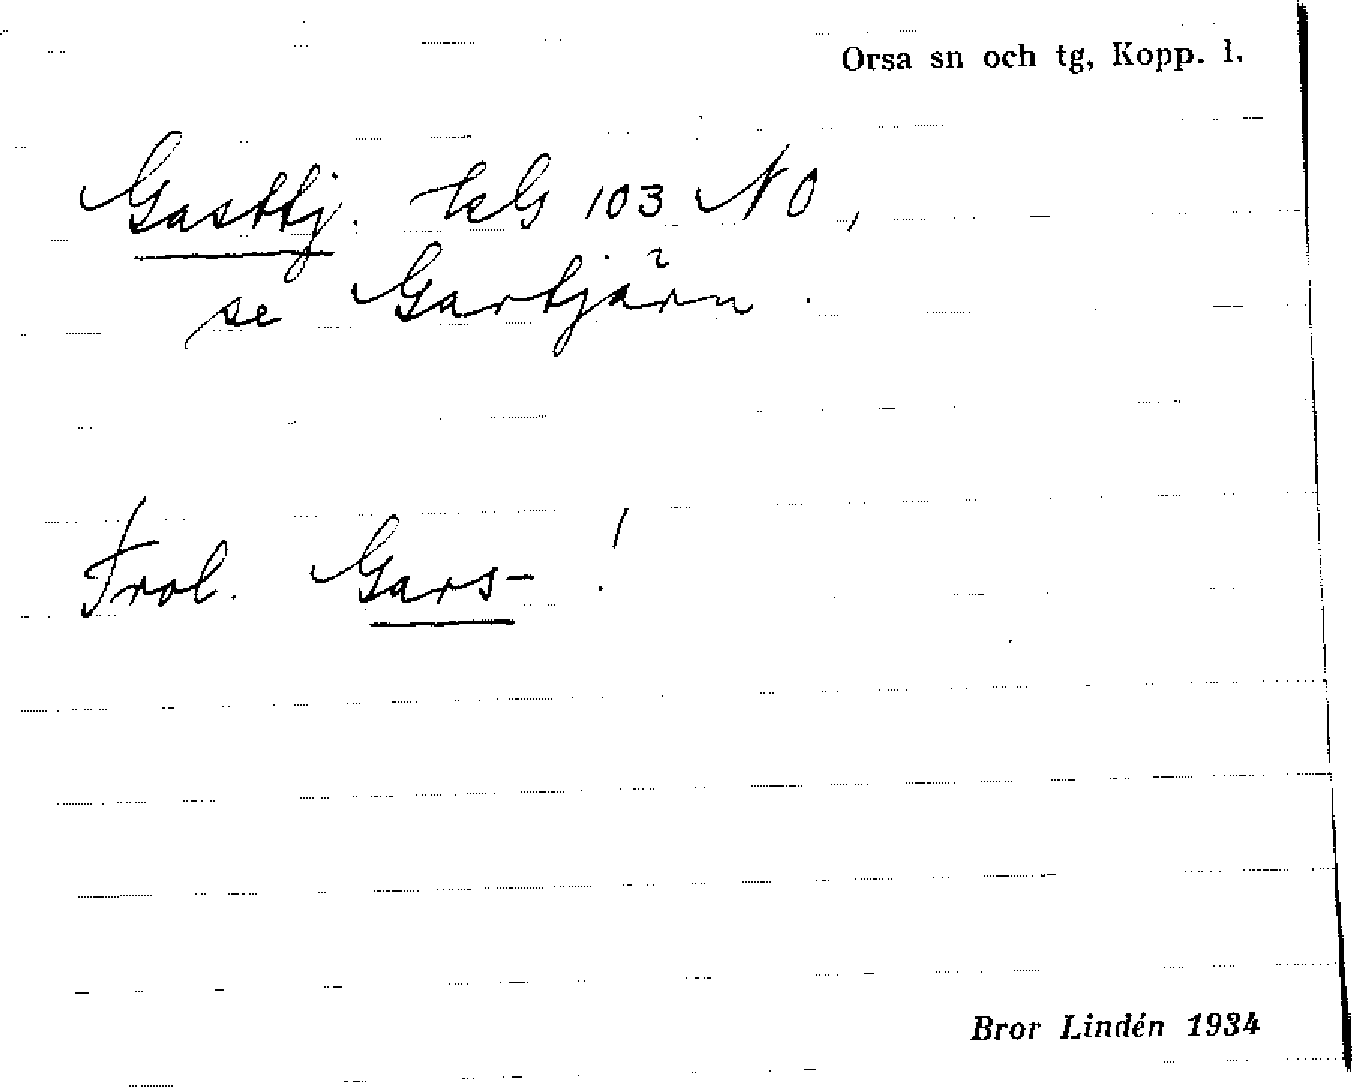 Orsa sn och tg, Kopp. l.
Gasttj. tkG 103 NO,
se Gartjärn.
Trol. Gars- !
Bror Lindén 1934